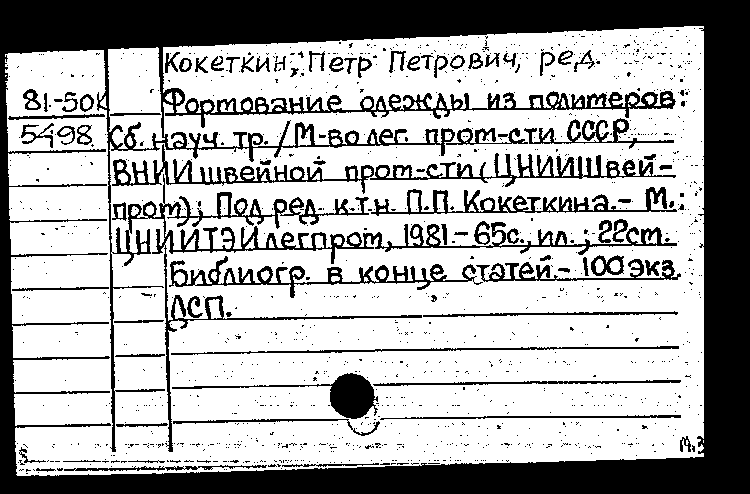 Кокеткин, Петр Петрович, ред.
81-50К Формование одежды из полимеров:
5498 Сб. науч. тр. / М-во лег. пром-сти СССР,
ВНИИ швейной пром-сти (ЦНИИШвей-
пром); Под ред. к.т.н. П.П. Кокеткина.- М.:
ЦНИИТЭИлегпром, 1981.- 65с., ил.; 22см.
Библиогр. в конце статей.- 100 экз.
ДСП.
М.З